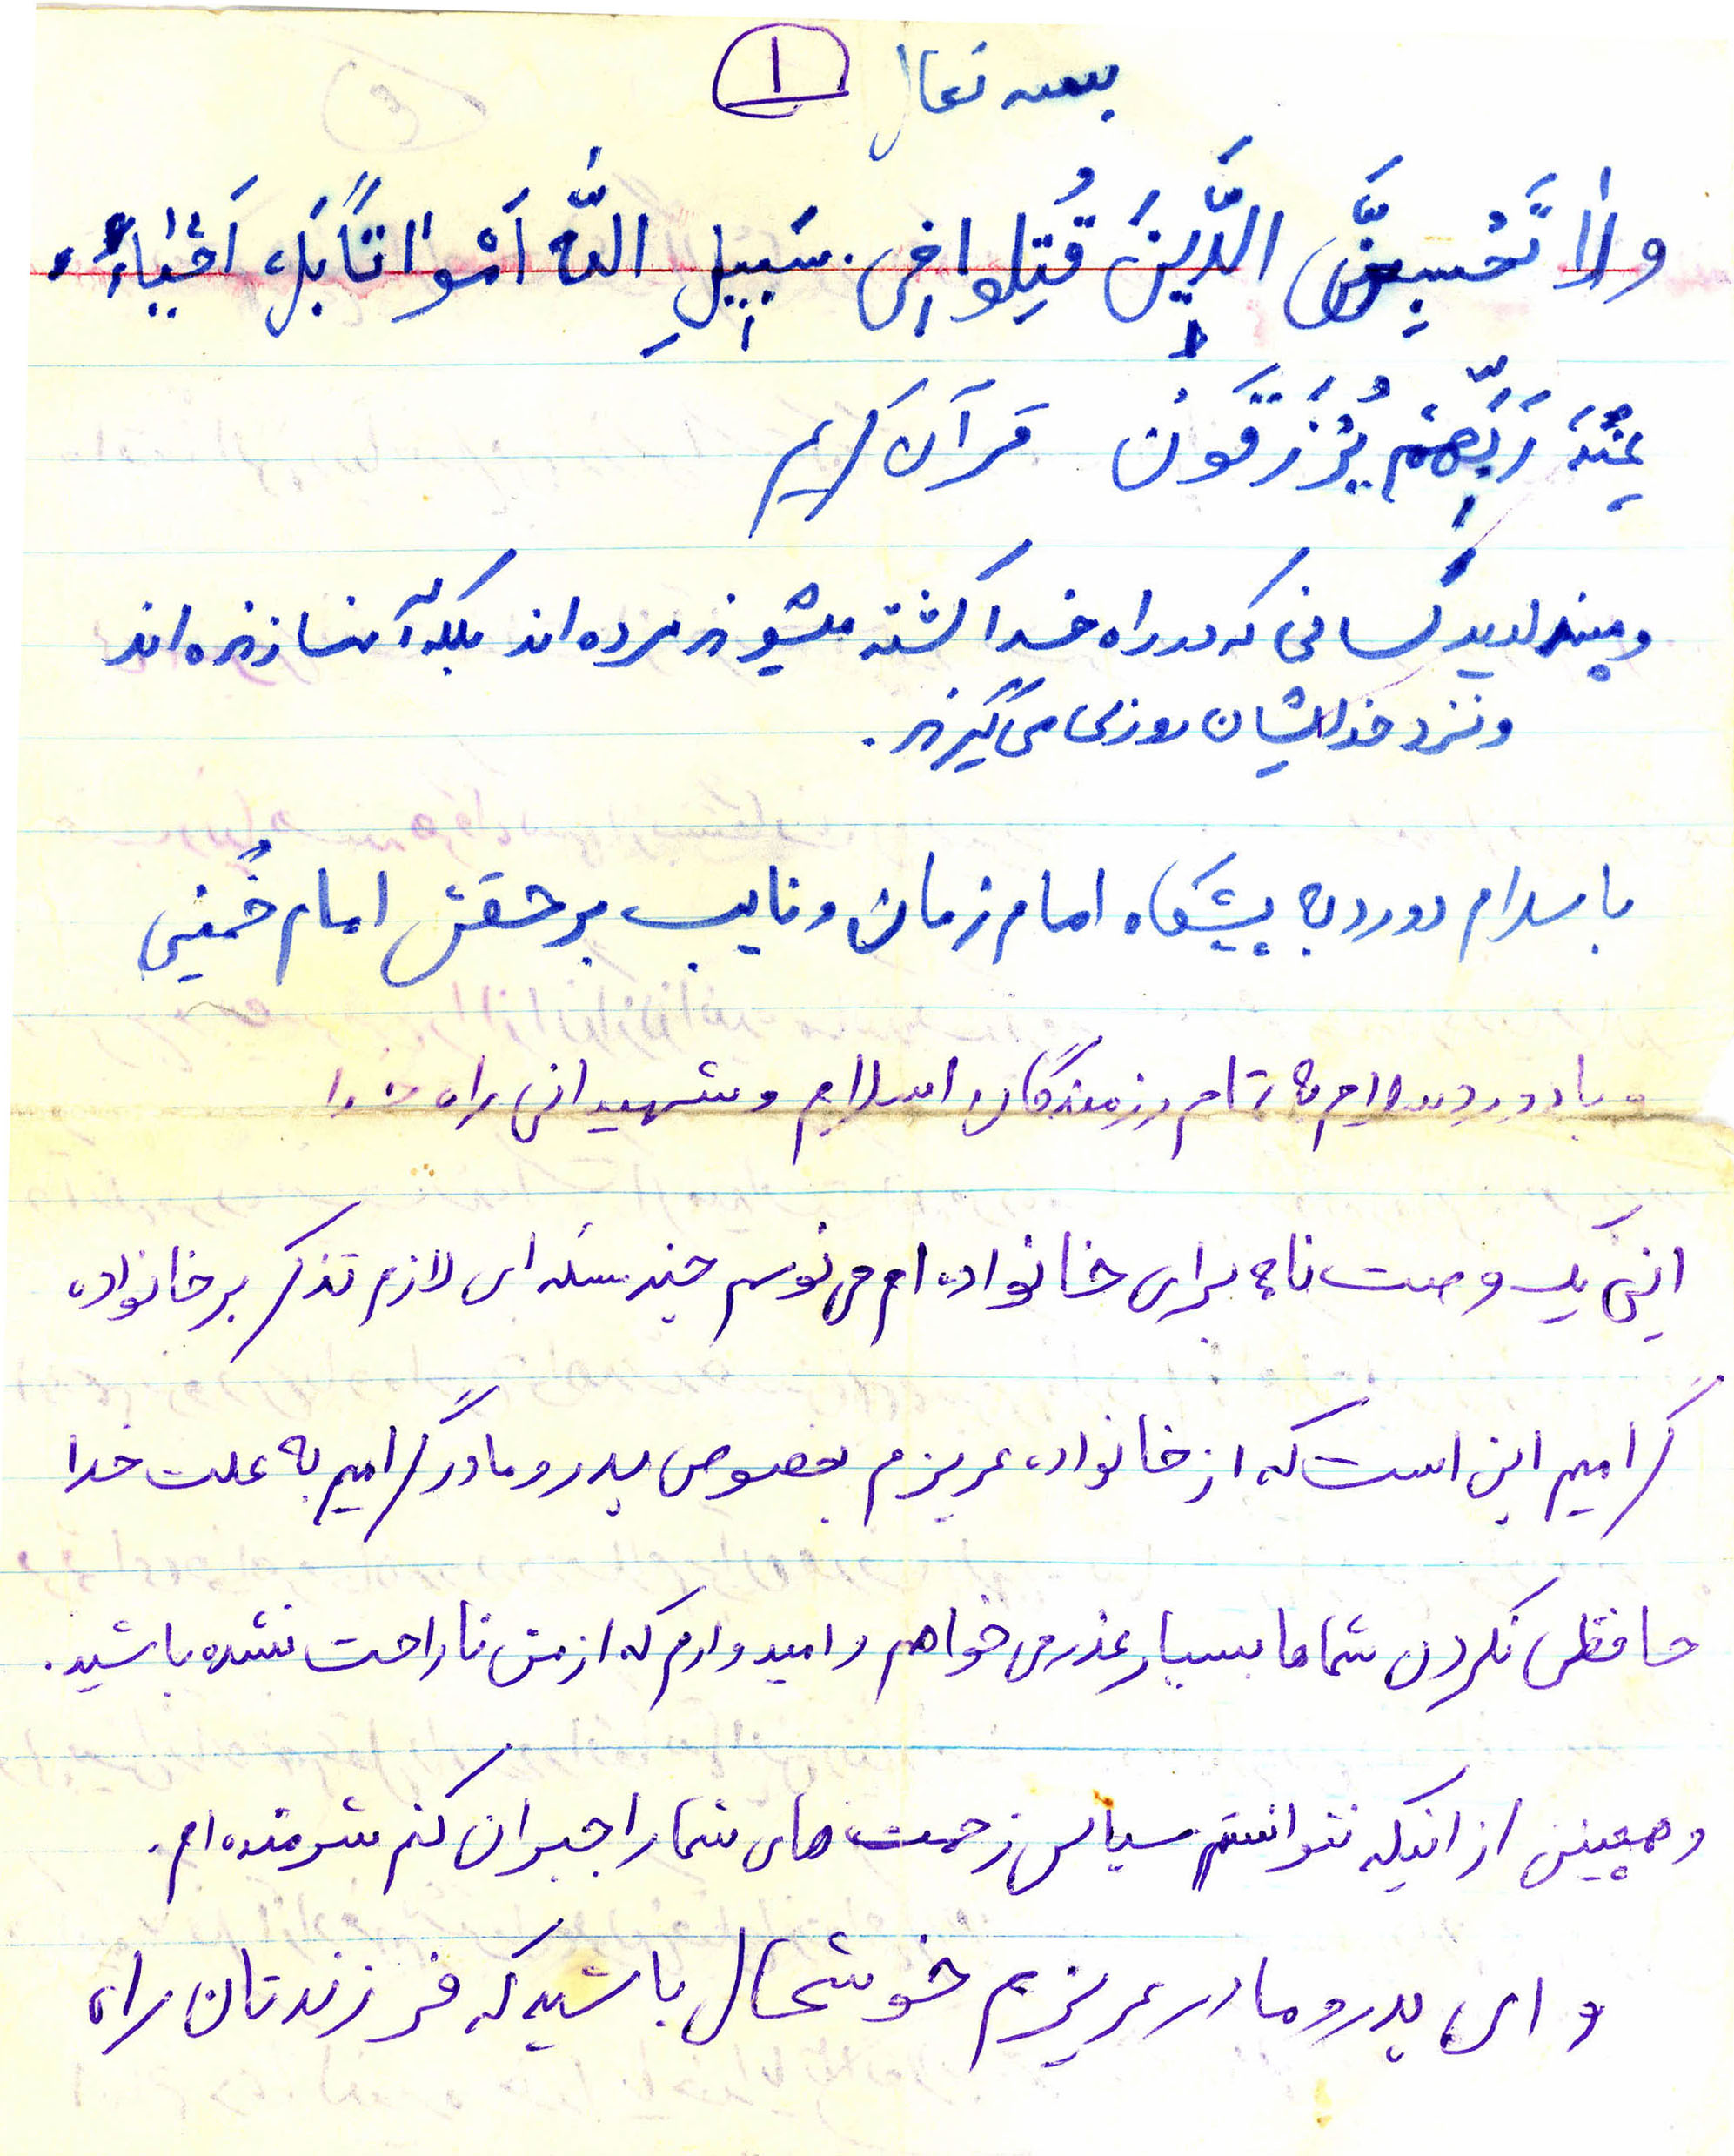 بسمه تعالی ۱
ولا تَحْسِبَنَّ الَّذینَ قُتِلوا فی سَبیلِ اللّه اَمْواتاً بَلْ اَحْیاءٌ
عِنْدَ رَبِّهِمْ یُرْزَقَوُنَ قرآن کریم
ومپندارید کسانی که در راه خدا کشته میشوند مرده اند بلکه آنها زنده اند
و نزد خدایشان روزی می گیرند.
با سلام درود به پیشگاه امام زمان و نایب بر حقش امام خُمینی
و با درود سلام به تمام رزمندگان اسلام و شهیدانی راه خدا
اینک یک وصت نامه برای خانواده ام می نویسم چند مسئله ای لازم تذکر بر خانواده
گرامیم این است که از خانواده عزیزم بخصوص پدر و مادر گرامیم به علت خدا
حافظی نکردن شماها بسیار عذر می خواهم و امیدوارم که از من ناراحت نشده باشید.
و همچنین از اینکه نتوانستم سپاس زحمت های شما را جبران کنم شرمنده ام.
و ای پدر و مادر عزیزم خوشحال باشید که فرزندتان راه